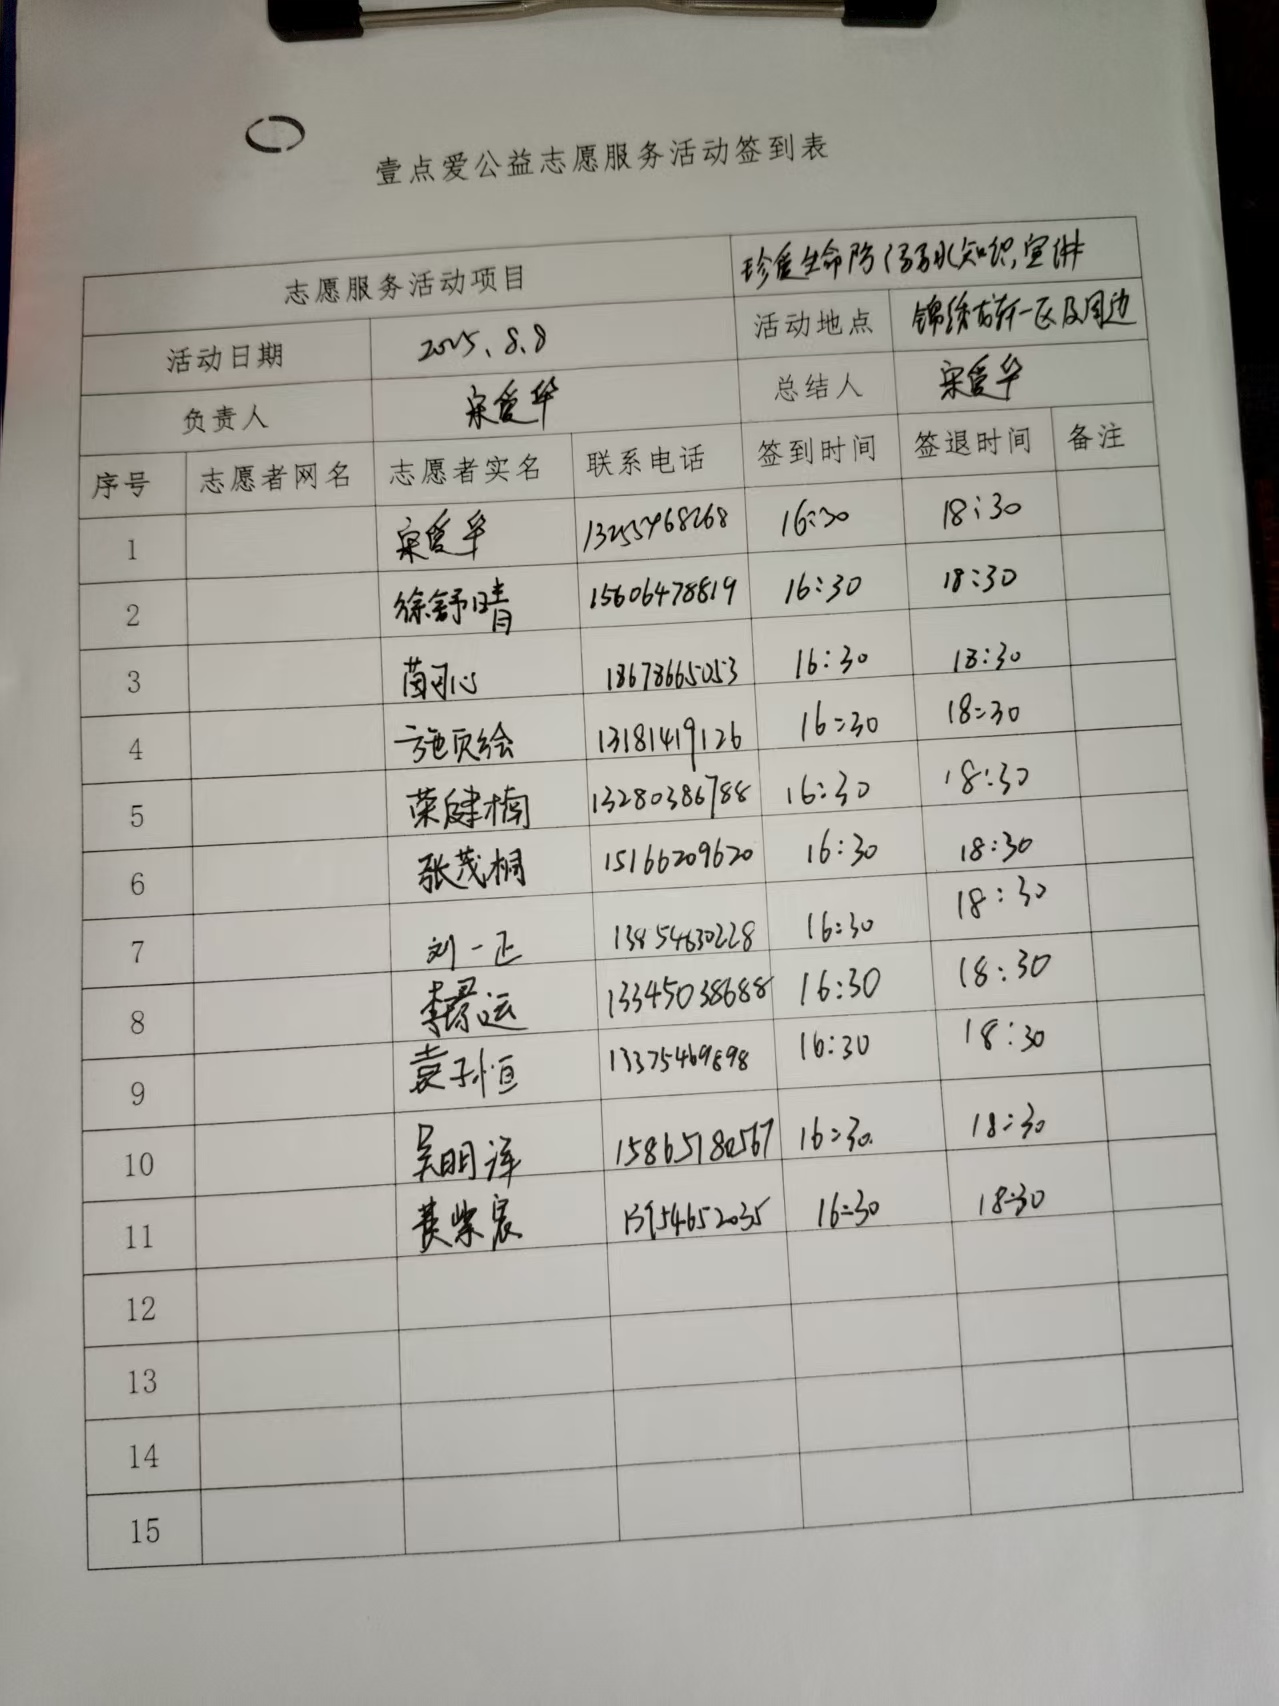 壹点爱公益志愿服务活动签到表
志愿服务活动项目 珍爱生命防溺水知识宣讲
活动日期 2025、8、8 活动地点 锦绣 一区及周边
负责人 宋爱华 总结人 宋爱华
序号 志愿者网名 志愿者实名 联系电话 签到时间 签退时间 备注
1 宋爱华 13255468268 16:30 18:30
2 徐舒晴 15606478819 16:30 18:30
3 苗可心 18678665053 16:30 18:30
4 施页绘 13181419126 16:30 18:30
5 荣健楠 13280386788 16:30 18:30
6 张茂桐 15166209620 16:30 18:30
7 刘一正 13854630228 16:30 18:30
8 李 运 13345038688 16:30 18:30
9 袁子恒 13375469898 16:30 18:30
10 吴明泽 15865780567 16:30 18:30
11 黄紫宸 16:30 18:30
12
13
14
15